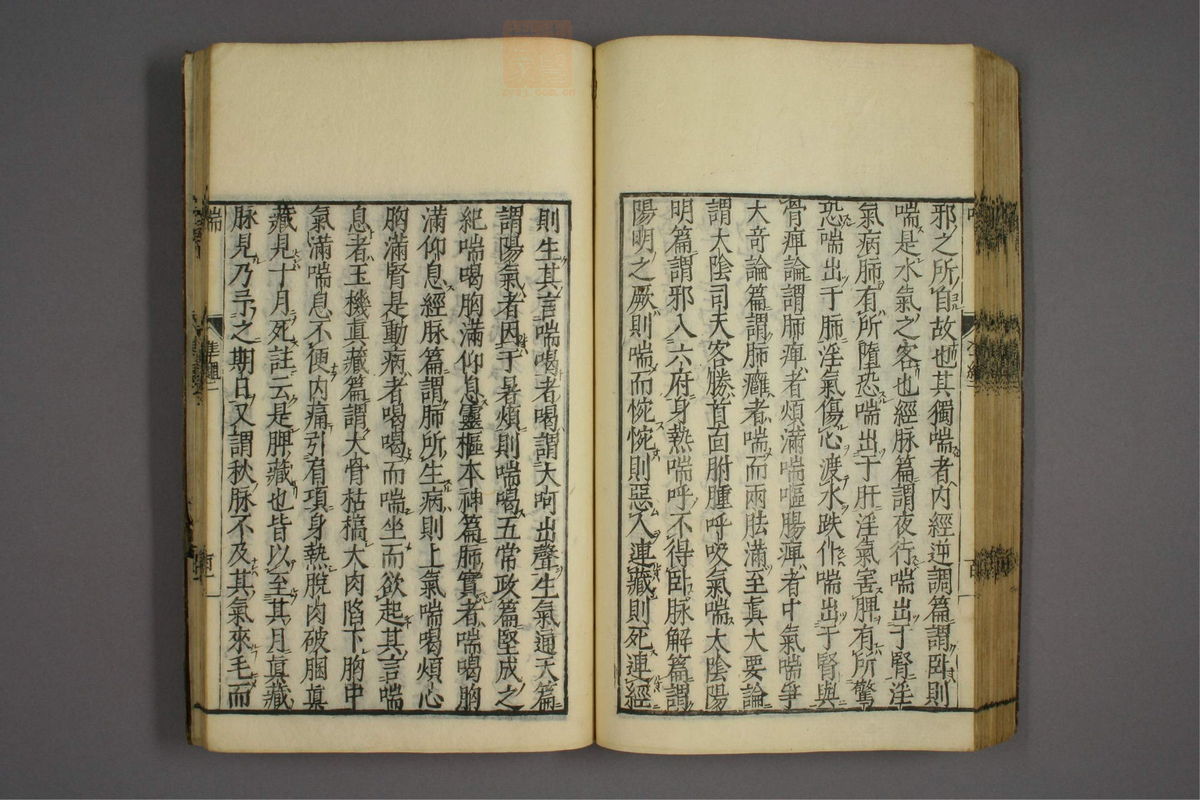 邪之所自故也其獨喘者內經逆調篇謂臥則
喘是水氣之客也經脉篇謂夜行喘出于腎淫
氣病肺有所隨恐喘出于肝淫氣害脾有所驚
恐喘出于肺淫氣傷心渡水跌仆喘出于腎與
骨痺論謂肺痺者煩滿喘嘔腸痺者中氣喘爭
大奇論篇謂肺癰者喘而兩胠滿至真大要論
謂太陰司天客勝首面胕腫呼吸氣喘太陰陽
明篇謂邪入六府身熱喘呼不得臥脉解篇謂
陽明之厥則喘而惋惋則惡人連藏則死連經
則生其言喘喝者喝謂大呵出聲生氣通天篇
謂陽氣者因于暑煩則喘喝五常政篇堅成之
紀喘喝胸滿仰息靈樞本神篇肺實者喘喝胸
滿仰息經脉篇謂肺所生病則上氣喘喝煩心
胸滿腎是動病者喝喝而喘坐而欲起其言喘
息者玉機眞藏篇謂大骨枯槁大肉陷下胸中
氣滿喘息不便內痛引肩項身熱脫肉破䐃眞
藏見十月死註云是脾藏也皆以至其月眞藏
脉見乃予之期日又謂秋脉不及其氣來毛而
喘
準繩二